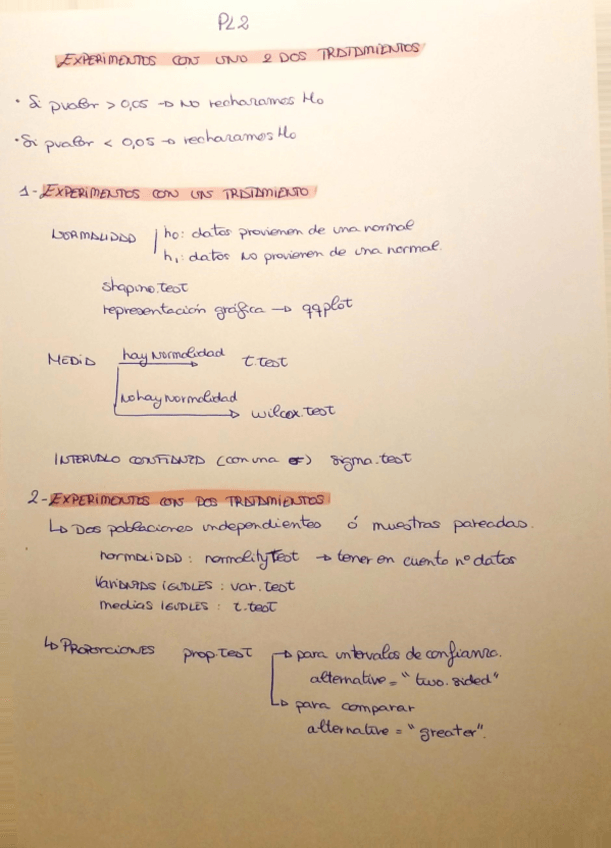 PL2
EXPERIMENTOS CON UNO o DOS TRATAMIENTOS
· Si pvalor > 0,05 → NO rechazamos Ho
· Si pvalor < 0,05 → rechazamos Ho
1- EXPERIMENTOS CON UN TRATAMIENTO
NORMALIDAD
ho: datos provienen de una normal
h1: datos NO provienen de una normal.
shapiro.test
representación gráfica → qqplot
MEDIA hay Normalidad → t.test
No hay Normalidad → wilcox.test
INTERVALO CONFIANZA (con una σ) sigma.test
2- EXPERIMENTOS CON DOS TRATAMIENTOS
↳ Dos poblaciones independientes ó muestras pareadas.
NORMALIDAD : normalityTest → tener en cuenta nº datos
VARIANZAS IGUALES : var.test
medias IGUALES : t.test
↳ PROPORCIONES prop.test → para intervalos de confianza.
alternative = "two.sided"
→ para comparar
alternative = "greater".